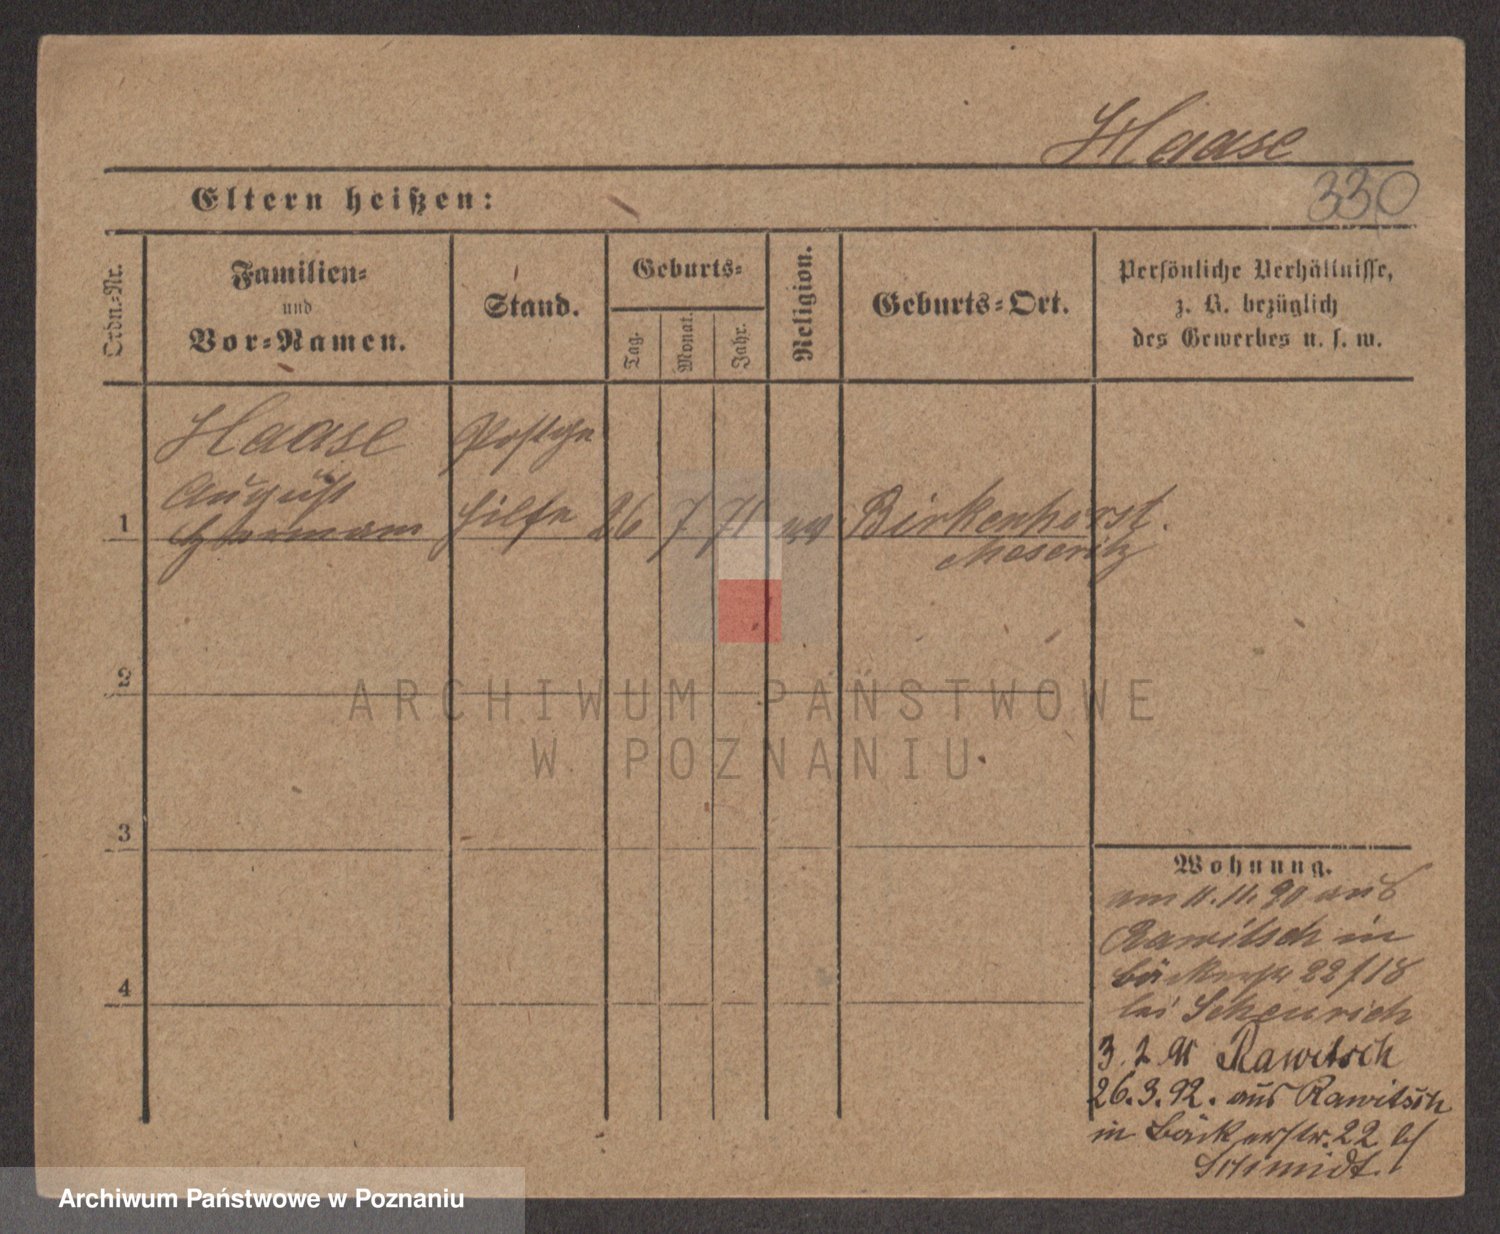 Haase
330
Eltern heißen:
Ordn.-Nr.
Familien-
und
Vor-Namen.
Stand.
Geburts-
Tag.
Monat.
Jahr.
Religion.
Geburts-Ort.
Persönliche Verhältnisse,
z. B. bezüglich
des Gewerbes u. s. w.
Haase
August
Hermann
Postge
hilfe
1
26
7
71
ev.
Birkenhorst.
Meseritz
2
3
4
Wohnung.
am 11.11.90 aus
Rawitsch in
Bäckerstr 22/18
bei
3. 2. 91 Rawitsch
26.3.92. aus Rawitsch
in Bäckerstr. 22 bei
Schmidt.
ARCHIWUM PAŃSTWOWE
W POZNANIU
Archiwum Państwowe w Poznaniu